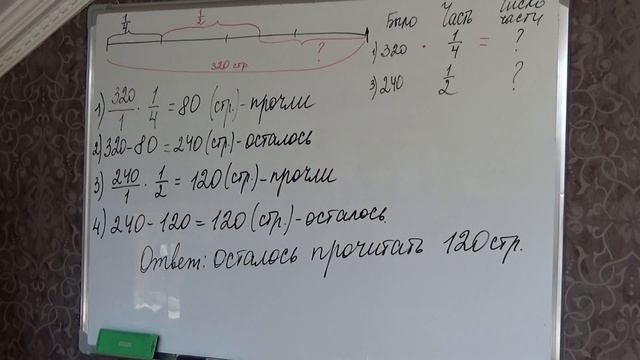 1/4 1/2 ?
320 стр
Было Часть Число части
1) 320 · 1/4 = ?
3) 240 1/2 ?
1) 320/1 · 1/4 = 80 (стр.) - прочли
2) 320 - 80 = 240 (стр.) - осталось
3) 240/1 · 1/2 = 120 (стр.) - прочли
4) 240 - 120 = 120 (стр.) - осталось.
Ответ: осталось прочитать 120 стр.